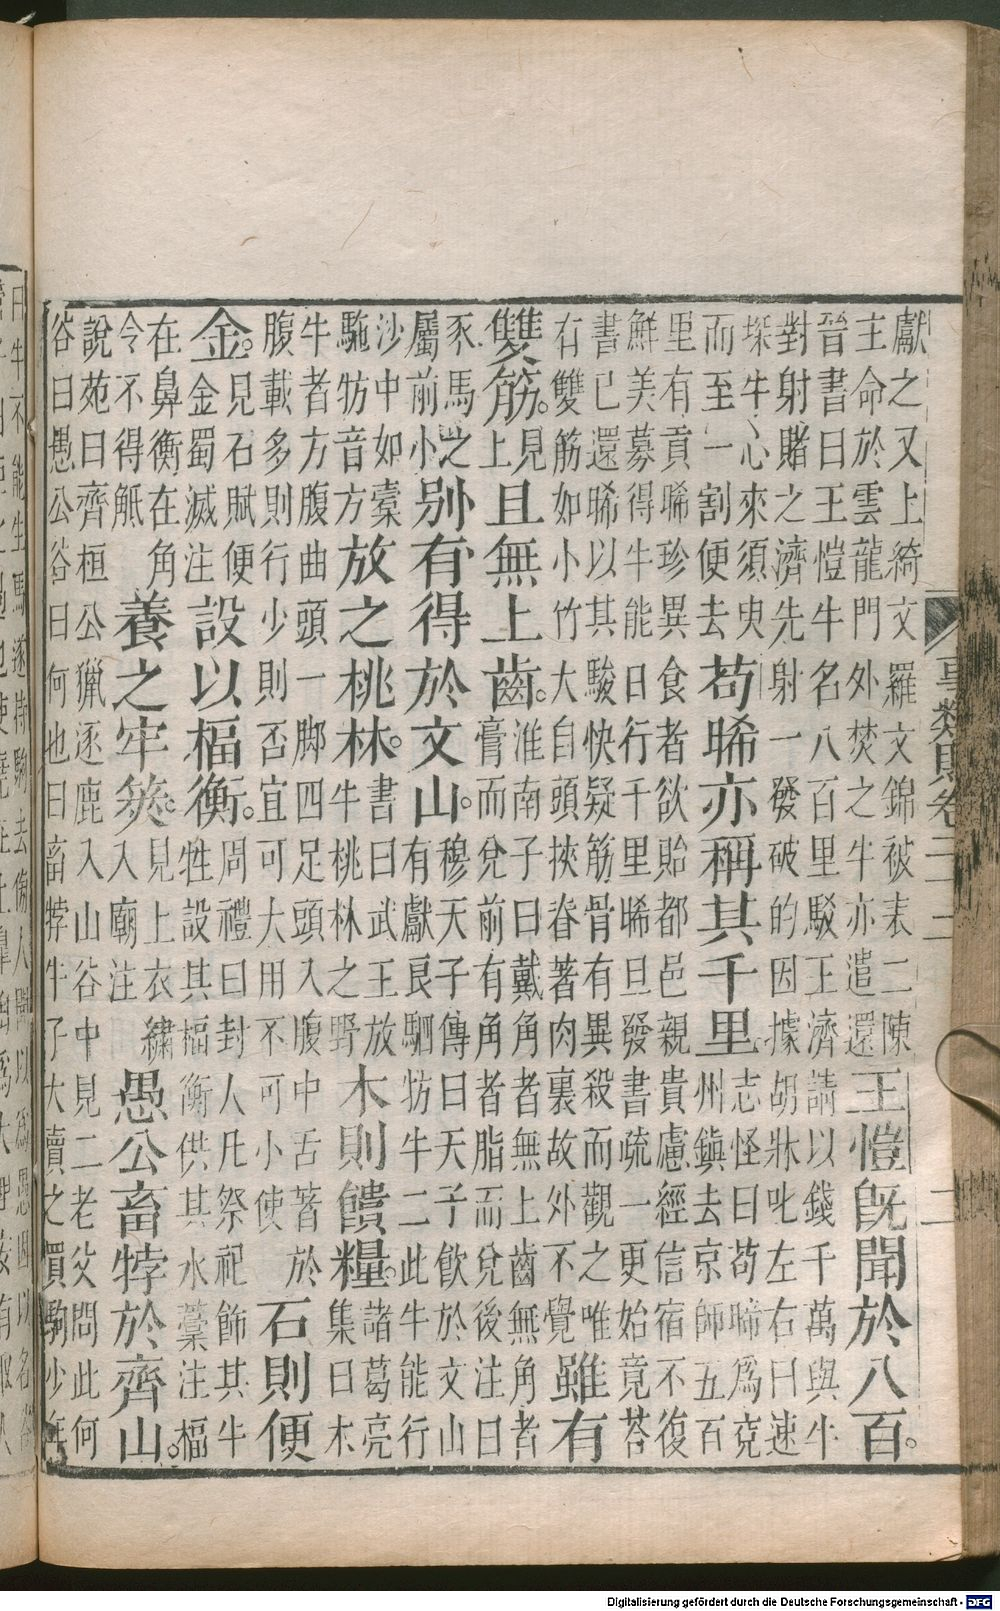 事類賦卷二十二 二
獻之又上綺文羅文錦被表二陳
主命於雲龍門外焚之牛亦遣還
王愷既聞於八百。
晉書曰王愷牛名八百里駁王濟請以錢千萬與牛
對射賭之濟先射一發破的因據胡牀叱左右曰速
探牛心來須臾
而至一割便去
苟晞亦稱其千里。
志怪曰苟晞爲兗
州鎮去京師五百
里有貢晞珍異食者欲貽都邑親貴慮經信宿不復
鮮美募得牛能日行千里晞旦發書疏一更始竟荅
書已還晞以其駿快疑筋骨有異殺而觀之唯
右雙筋如小竹大自頭挾脊著肉裏故外不覺
雖有
雙筋。
見
上
且無上齒。
淮南子曰戴角者無上齒無角者
膏而兌前有角者脂而兌後注曰
豕馬之
屬前小
别有得於文山。
穆天子傳曰天子飲於文山
有獻良駟牥牛二此牛能行
沙中如槖
駞牥音方
放之桃林。
書曰武王放
牛桃林之野
木則饋糧。
諸葛亮
集曰木
牛者方腹曲頭一脚四足頭入腹中舌著於
腹載多則行少則否宜可大用不可小使
石則便
金。
見石賦便
金蜀滅注
設以楅衡。
周禮曰封人凡祭祀飾其牛
牲設其楅衡供其水藁注楅
在鼻衡在角
令不得觝
養之牢筴。
見上衣繡
入廟注
愚公畜牸於齊山。
說苑曰齊桓公獵逐鹿入山谷中見二老父問此何
谷曰愚公谷曰何也曰畜牸牛子大賣之買駒少年
Digitalisierung gefördert durch die Deutsche Forschungsgemeinschaft - DFG